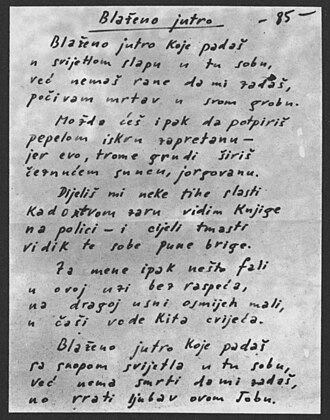 Blaženo jutro
- 85 -
Blaženo jutro koje padaš
u svijetlom slapu u tu sobu,
već nemaš rane da mi zadaš,
počivam mrtav u svom grobu.
Možda ćeš ipak da potpiriš
pepelom iskru zapretanu –
jer evo, trome grudi širiš
čeznućem suncu, jorgovanu.
Dijeliš mi neke tihe slasti
kad otvom žaru vidim knjige
na polici – i cijeli tmasti
vidik te sobe pune brige.
Za mene ipak nešto fali
u ovoj uzi bez raspeća,
na dragoj usni osmijeh mali,
u čaši vode kita cvijeća.
Blaženo jutro koje padaš
sa snopom svijetla u tu sobu,
već nema smrti da mi zadaš,
no vrati ljubav ovom Jobu.